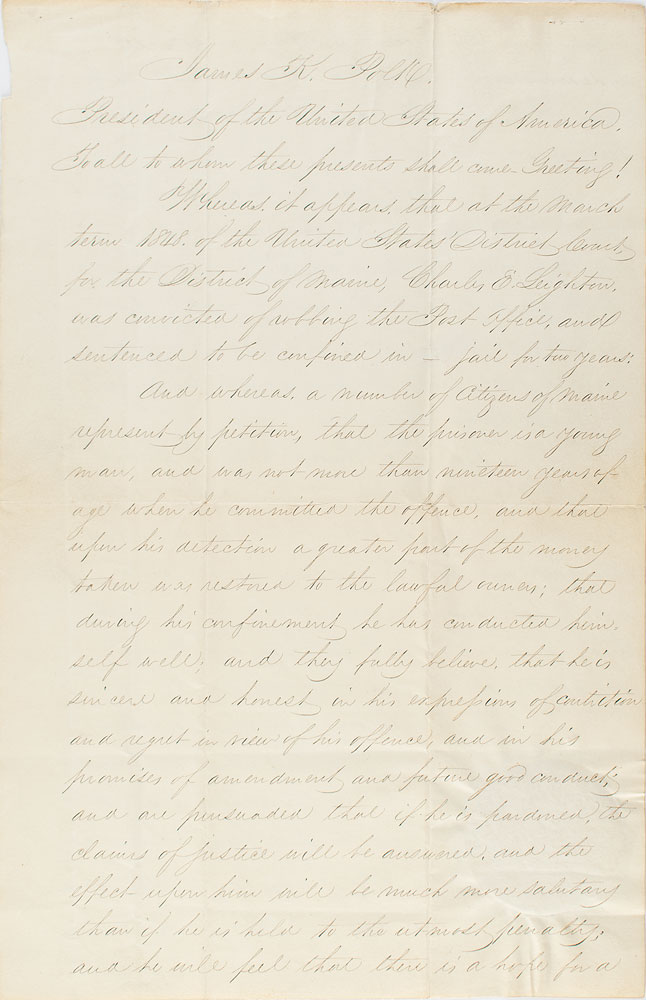 James K. Polk.
President of the United States of America.
To all to whom these presents shall come Greeting!
Whereas, it appears, that at the March
term 1848. of the United States' District Court,
for the District of Maine, Charles E. Leighton,
was convicted of robbing the Post Office, and
sentenced to be confined in — jail for two years:
And whereas, a number of Citizens of Maine
represent by petition, that the prisoner is a young
man, and was not more than nineteen years of
age when he committed the offence, and that
upon his detection a greater part of the money
taken was restored to the lawful owners; that
during his confinement, he has conducted him-
self well; and they fully believe, that he is
sincere and honest in his expressions of contrition
and regret in view of his offence, and in his
promises of amendment and future good conduct;
and are persuaded that if he is pardoned, the
claims of justice will be answered, and the
effect upon him will be much more salutary
than if he is held to the utmost penalty;
and he will feel that there is a hope for a